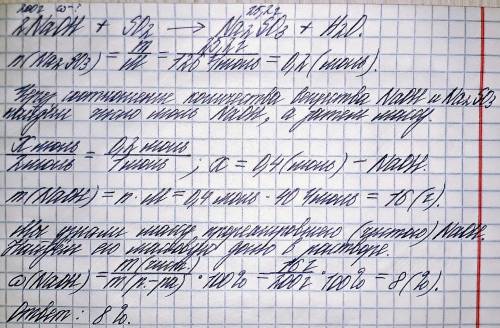 200г ω-? 25,2г
2NaOH + SO₂ → Na₂SO₃ + H₂O.
n(Na₂SO₃) = m/M = 25,2г/126 г/моль = 0,2 (моль).
Через соотношение количества вещества NaOH и Na₂SO₃
найдём число моль NaOH, а затем массу.
X моль/2моль = 0,2 моль/1моль ; x = 0,4 (моль) - NaOH.
m(NaOH) = n · M = 0,4 моль · 40 г/моль = 16 (г).
Мы узнали массу прореагировавшего (чистого) NaOH.
Найдём его массовую долю в растворе.
ω(NaOH) = m(чист.)/m(р-ра) · 100% = 16 г/200г · 100% = 8 (%).
Ответ: 8%.